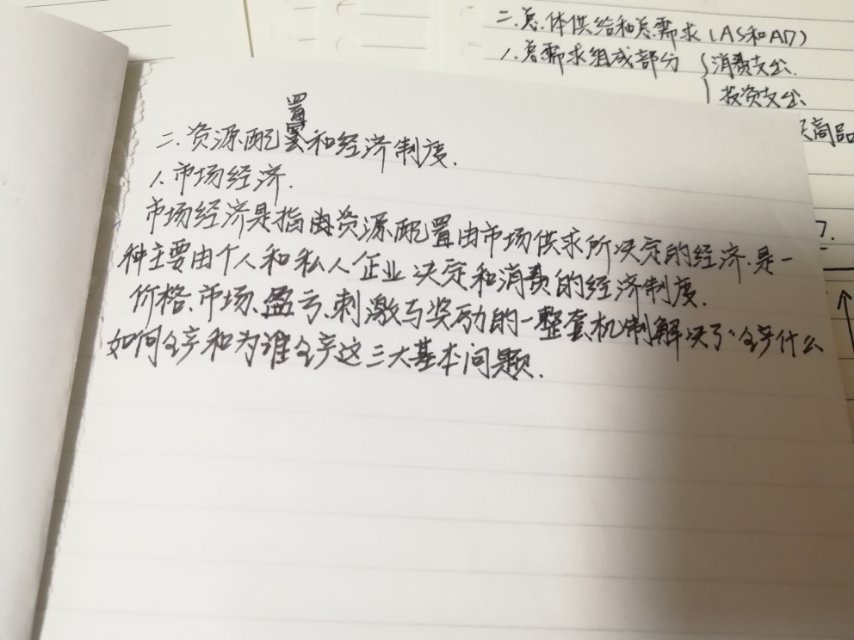 二.总体供给和总需求(AS和AD)
1.总需求组成部分 消费支出.
投资支出
商品
二.资源配置和经济制度.
1.市场经济.
市场经济是指由资源配置由市场供求所决定的经济.是一
种主要由个人和私人企业决定和消费的经济制度.
价格、市场、盈亏、刺激与奖励的一整套机制解决了“生产什么
如何生产和为谁生产这三大基本问题.